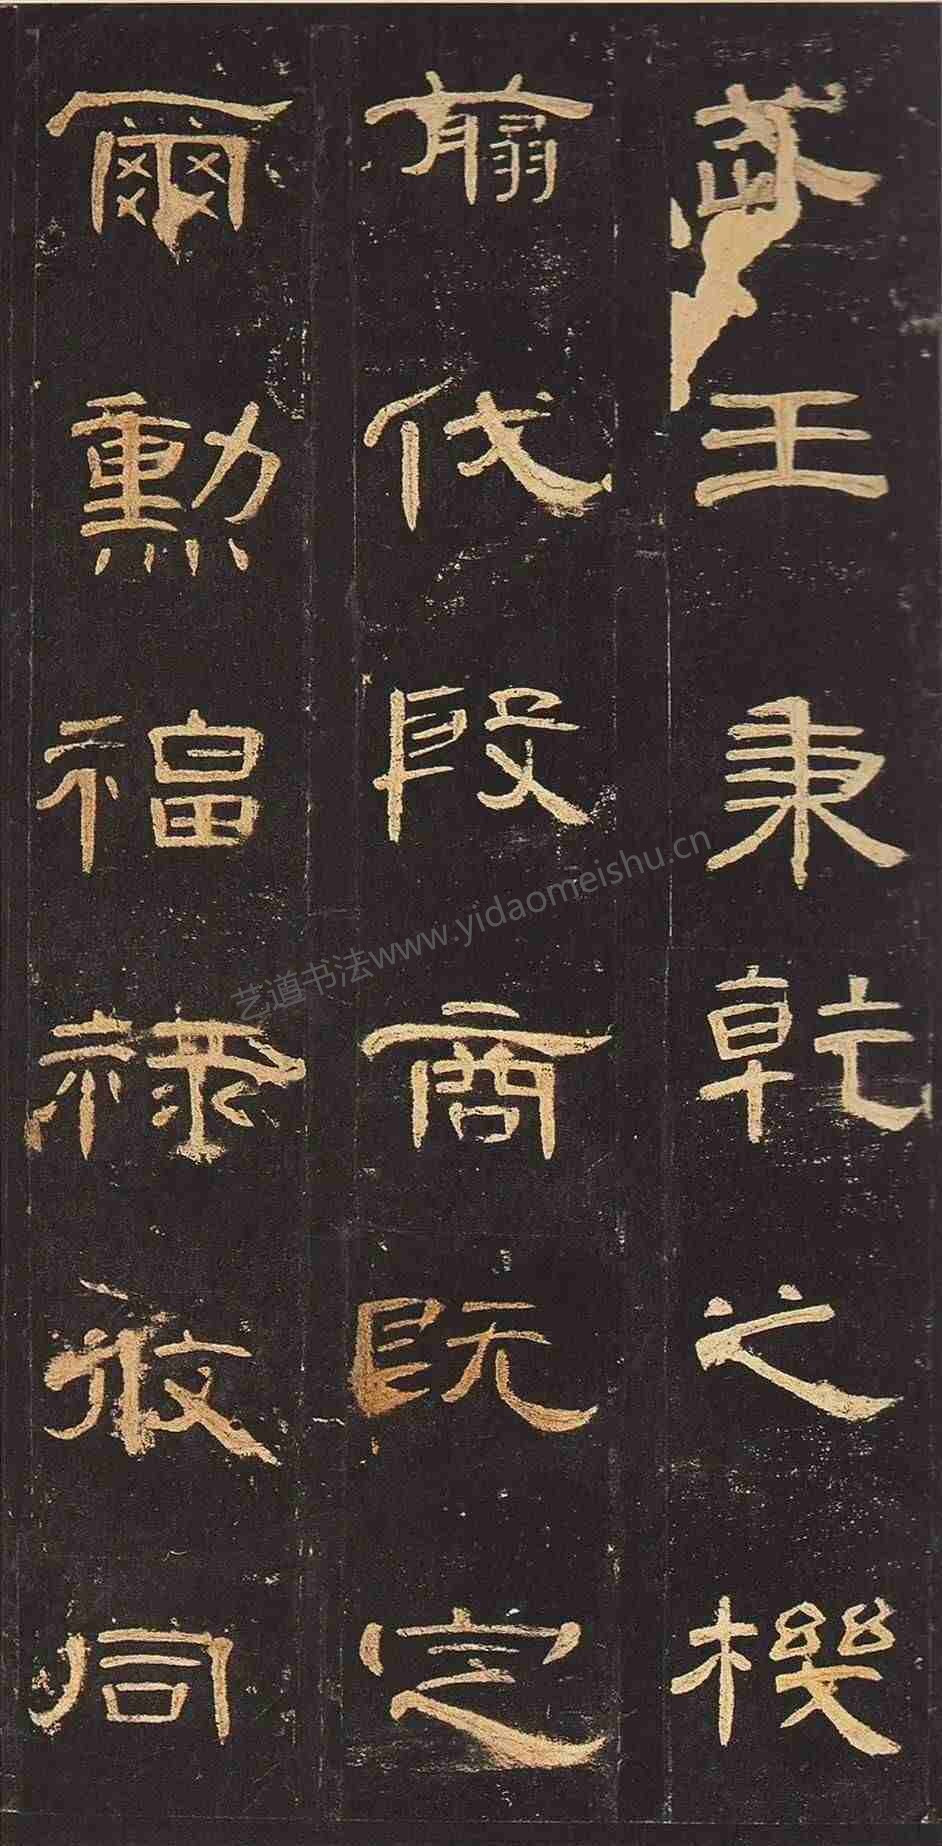 武王秉乾之機
翦伐殷商既定
爾勳福祿攸同
艺道书法www.yidaomeishu.cn